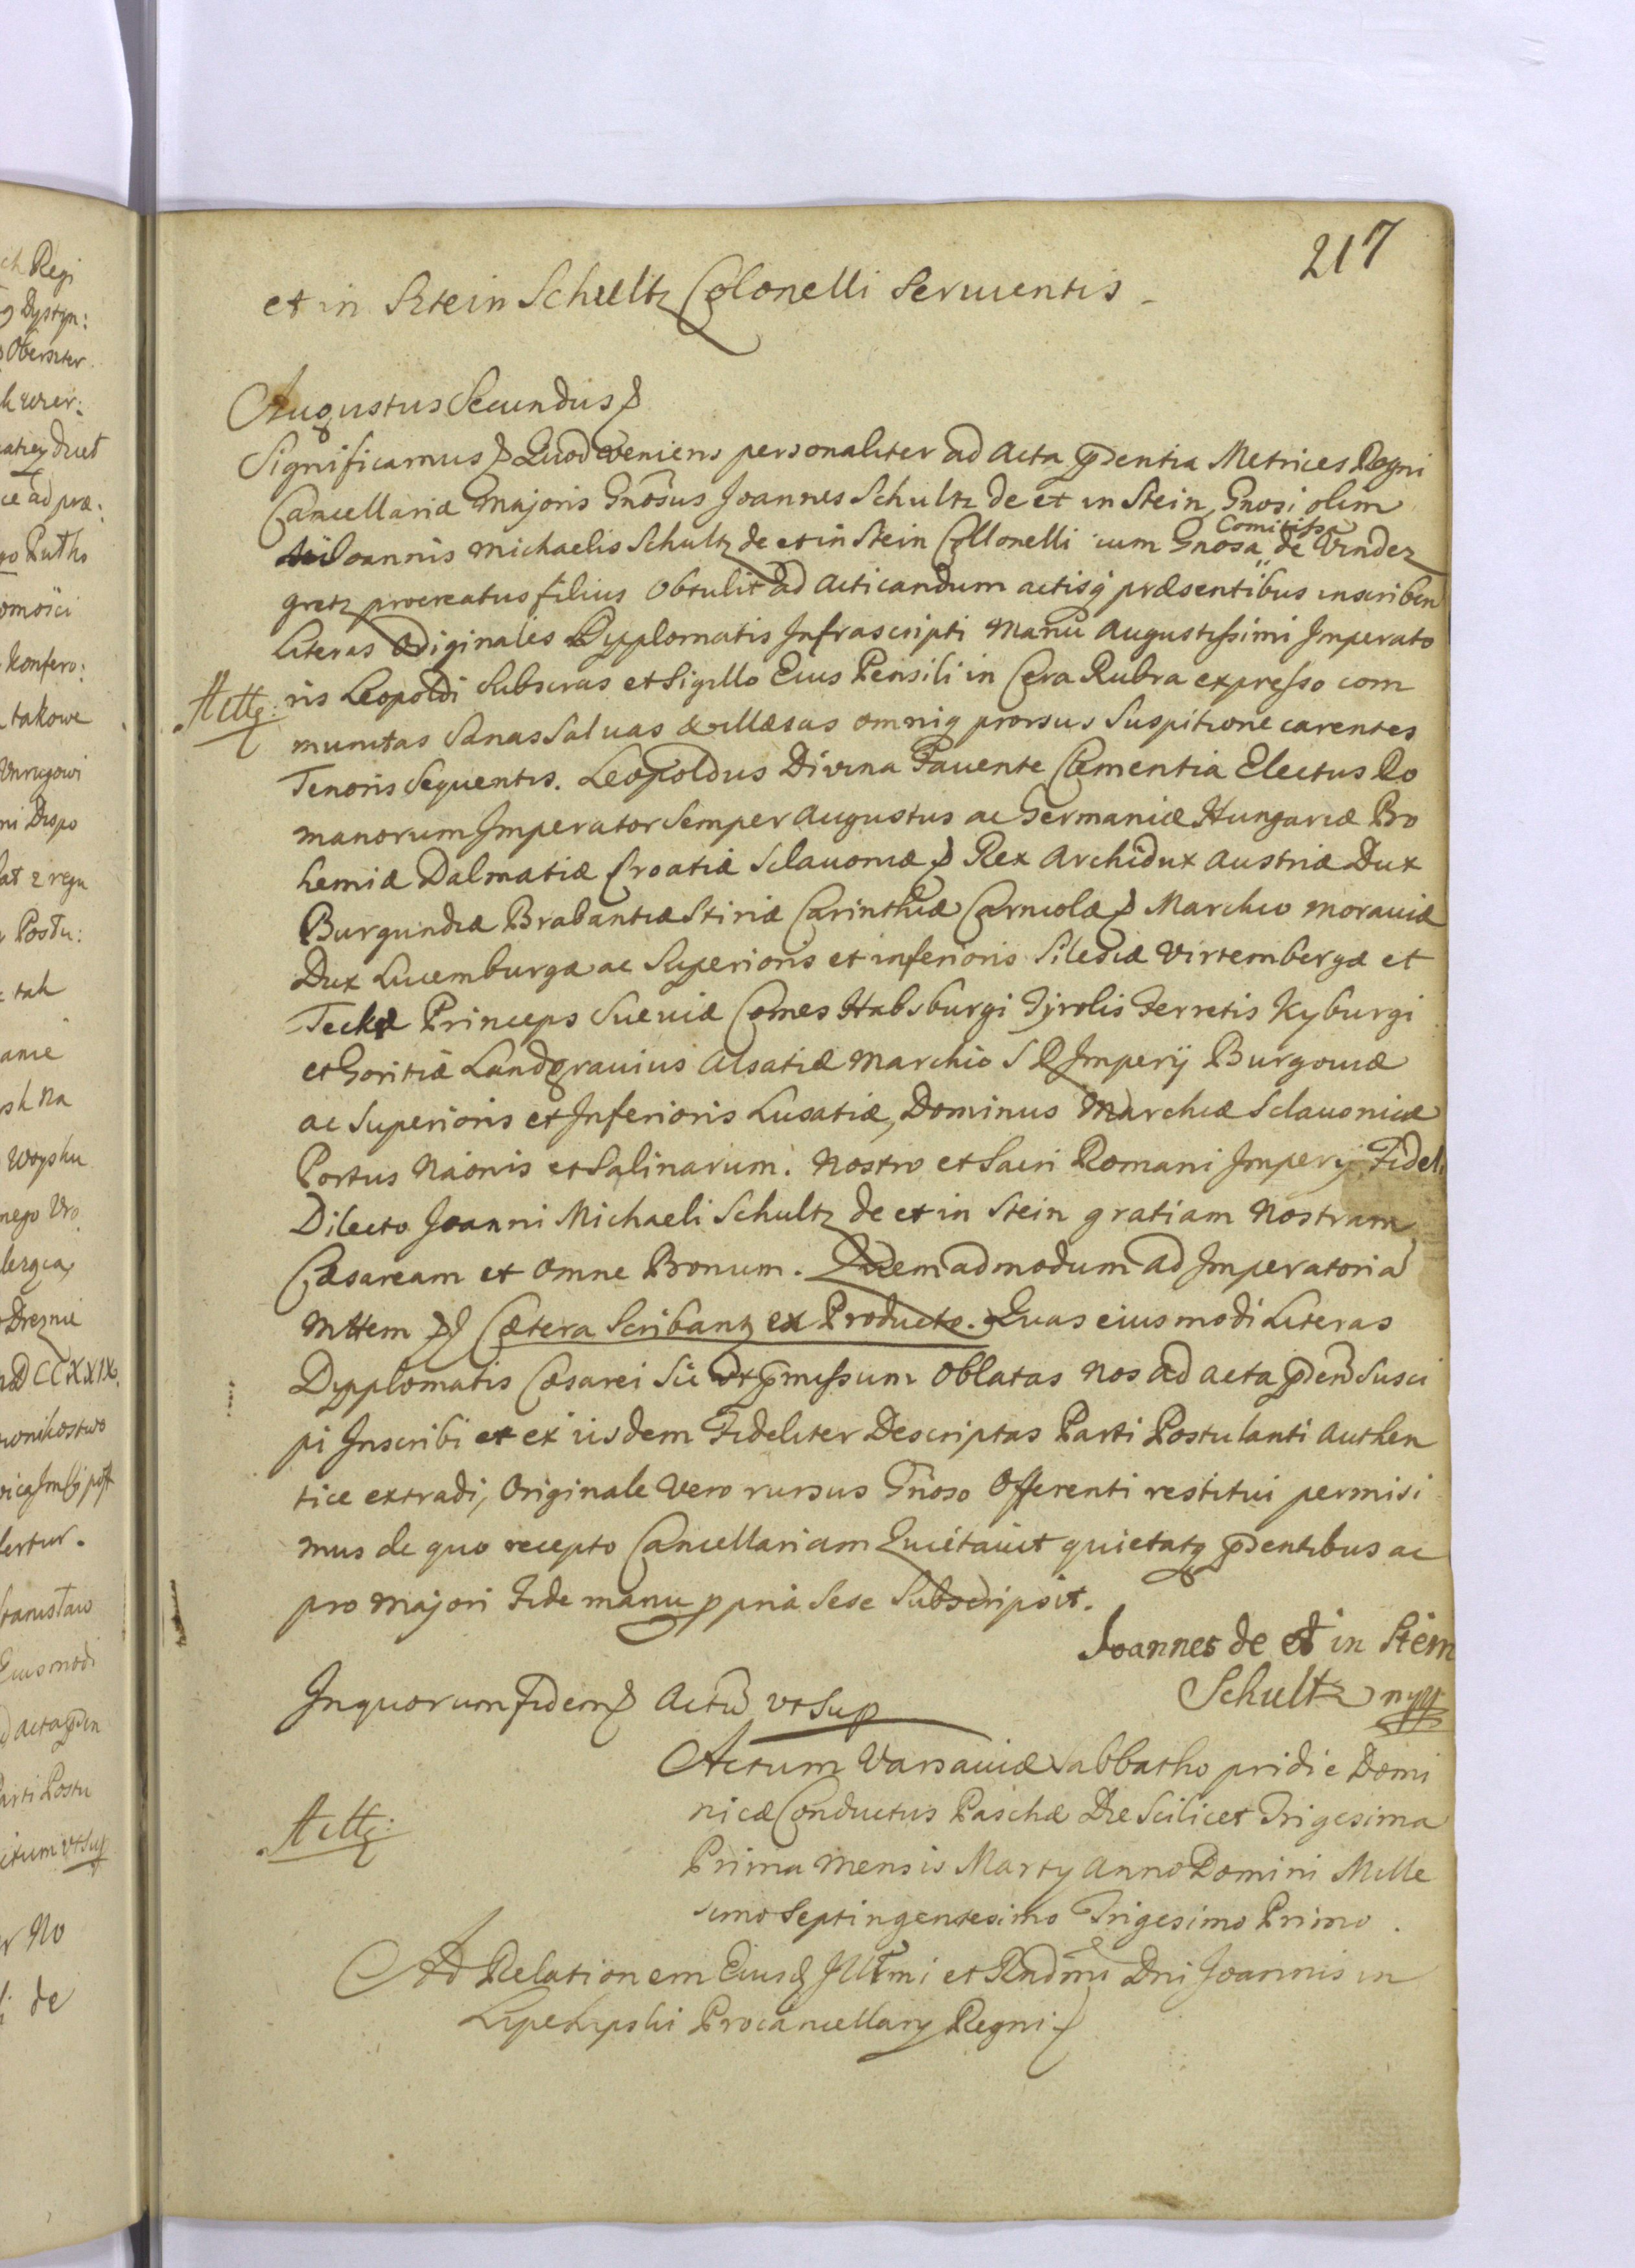 217
et in Sztein Schultz Colonelli Servientis
Augustus Secundus
Significamus Quod veniens personaliter ad Acta pdentia Metrices Regni
Cancellariæ Majoris Gnosus Joannes Schultz de et in Stein, Gnosi olim
Joannis Michaelis Schultz de et in Stein Collonelli cum Gnosa Comitissa de Vindez
gretz procreatus filius Obtulit ad Acticandum actisq præsentibus inscriben
Literas Originales Dypplomatis Infrascripti Manu Augustissimi Imperato
ris Leopoldi Subscras et Sigillo Eius Pensili in Cera Rubra expresso com
Attg:
munitas Sanas Saluas & illæsas omniq prorsus Suspitione carentes
Tenoris Sequentis. Leopoldus Divina Fauente Clementia Electus Ro
manorum Imperator Semper Augustus ac Germaniæ Hungariæ Bo
hemiæ Dalmatiæ Croatiæ Sclauoniæ Rex Archidux Austriæ Dux
Burgundiæ Brabantiæ Stiriæ Carinthiæ Carniolæ Marchio Morauiæ
Dux Lucemburgæ ac Superioris et inferioris Silesiæ Virtembergæ et
Teckæ Princeps Sueuiæ Comes Habsburgi Tyrolis Ferretis Kyburgi
et Goritiæ Landgrauius Alsatiæ Marchio S R Imperij Burgouiæ
ac Superioris et Inferioris Lusatiæ, Dominus Marchiæ Sclauonicæ
Portus Naonis et Salinarum. Nostro et Sacri Romani Imperij Fidel.
Dilecto Joanni Michaeli Schultz de et in Stein gratiam Nostram
Cæsaream et Omne Bonum. Quemadmodum ad Imperatoria
Mttem Cætera Scribantz ex Producto. Quas eiusmodi Literas
Dypplomatis Cæsarei Sic ut pmissum Oblatas Nos ad acta pden Susci
pi Inscribi et ex iisdem Fideliter Descriptas Parti Postulanti Authen
tice extradi, Originale Vero rursus Gnoso Offerenti restitui permisi
mus de quo recepto Cancellariam Quietauit quietatq pdentibus ac
pro Majori Fide manu ppria Sese Subscripsit.
Joannes de et in Stein
Schultz mpp
In quorum fidem Actu vt Sup
Actum Varsauiæ Sabbatho pridie Domi
nicæ Conductus Paschæ Die Scilicet Trigesima
Attg:
Prima Mensis Marty Anno Domini Mille
simo Septingentesimo Trigesimo Primo.
Ad Relationem Eiusd Illtmi et Rndmi Dni Joannis in
Lipe Lipski Procancellary Regni